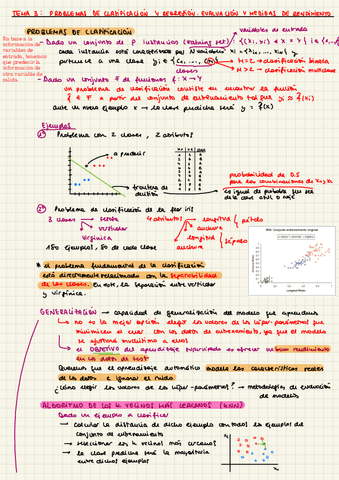 TEMA 3: PROBLEMAS DE CLASIFICACIÓN Y REGRESIÓN. EVALUACIÓN Y MEDIDAS DE RENDIMIENTO
PROBLEMAS DE CLASIFICACIÓN
variables de entrada
En base a la información de variables de entrada, tenemos que predecir la información de otra variable de salida.
- Dado un conjunto de P instancias (training set)
cada instancia está caracterizada por N variables
pertenece a una clase
clases
M = 2 → clasificación binaria
M > 2 → clasificación multiclase
- Dado un conjunto F de funciones f: X → Y
un problema de clasificación consiste en encontrar la función
f ∈ F a partir del conjunto de entrenamiento tal que
ante un nuevo ejemplo x → la clase predicha será y = f(x)
Ejemplos
Problema con 2 clases, 2 atributos
a predecir
frontera de decisión
probabilidad de 0,5
para las combinaciones de
es igual de probable que sea
de la clase azul o roja
Problema de clasificación de la flor iris
3 clases
setosa
versicolor
virginica
4 atributos
longitud
anchura
pétalo
longitud
anchura
sépalo
150 ejemplos, 50 de cada clase
* el problema fundamental de la clasificación
está directamente relacionado con la separabilidad
de las clases. En este, la separación entre versicolor
y virginica.
GENERALIZACIÓN → capacidad de generalización del modelo que aprendemos
→ no es la mejor opción elegir los valores de los hiper-parámetros que
minimicen el error con los datos de entrenamiento, ya que el modelo
se ajustará muchísimo a ellos
→ el OBJETIVO del aprendizaje supervisado es ofrecer un buen rendimiento
en los datos de test
Queremos que el aprendizaje automático modele las características reales
de los datos e ignorar el ruido
¿Cómo elegir los valores de los hiper-parámetros? → metodologías de evaluación
de modelos
ALGORITMO DE LOS K VECINOS MÁS CERCANOS (KNN)
Dado un ejemplo a clasificar
→ calcular la distancia de dicho ejemplo con todos los ejemplos del
conjunto de entrenamiento
→ seleccionar los k vecinos más cercanos
→ la clase predicha será la mayoritaria
entre dichos ejemplos